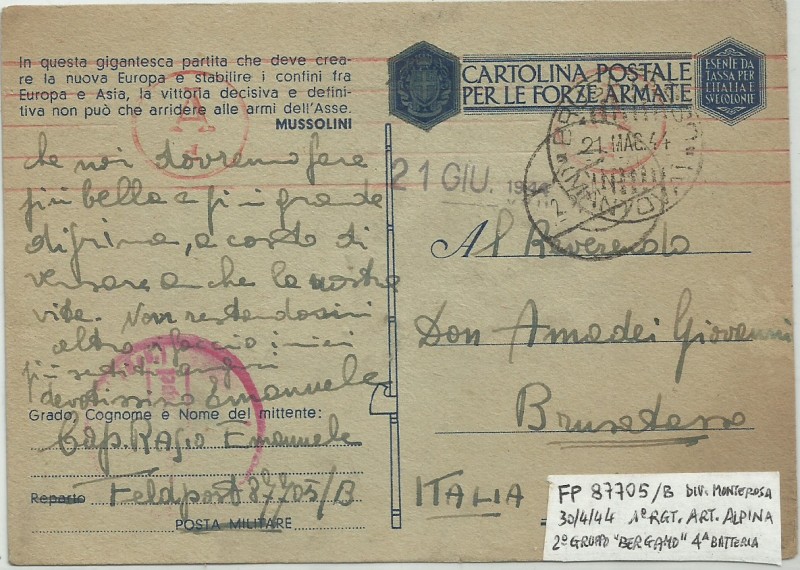 In questa gigantesca partita che deve crea-
re la nuova Europa e stabilire i confini fra
Europa e Asia, la vittoria decisiva e defini-
tiva non può che arridere alle armi dell'Asse.
MUSSOLINI
A
che noi dovremo fare
più bella e più grande
di prima, a costo di
versare anche la nostra
vita. Non restandomi
altro faccio i miei
più sentiti auguri
devotissimo Emanuele
Grado, Cognome e Nome del mittente:
Cap. Ragio Emanuele
Reparto Feldpost 87705/B
POSTA MILITARE
CARTOLINA POSTALE
PER LE FORZE ARMATE
ESENTE DA
TASSA PER
L'ITALIA E
SVE COLONIE
21.MAG.44
21 GIU. 1944
Al Reverendo
Don Amadei Giovanni
ITALIA
FP 87705/B DIV. MONTEROSA
30/4/44 1º RGT. ART. ALPINA
2º GRUPPO "BERGAMO" 4ª BATTERIA